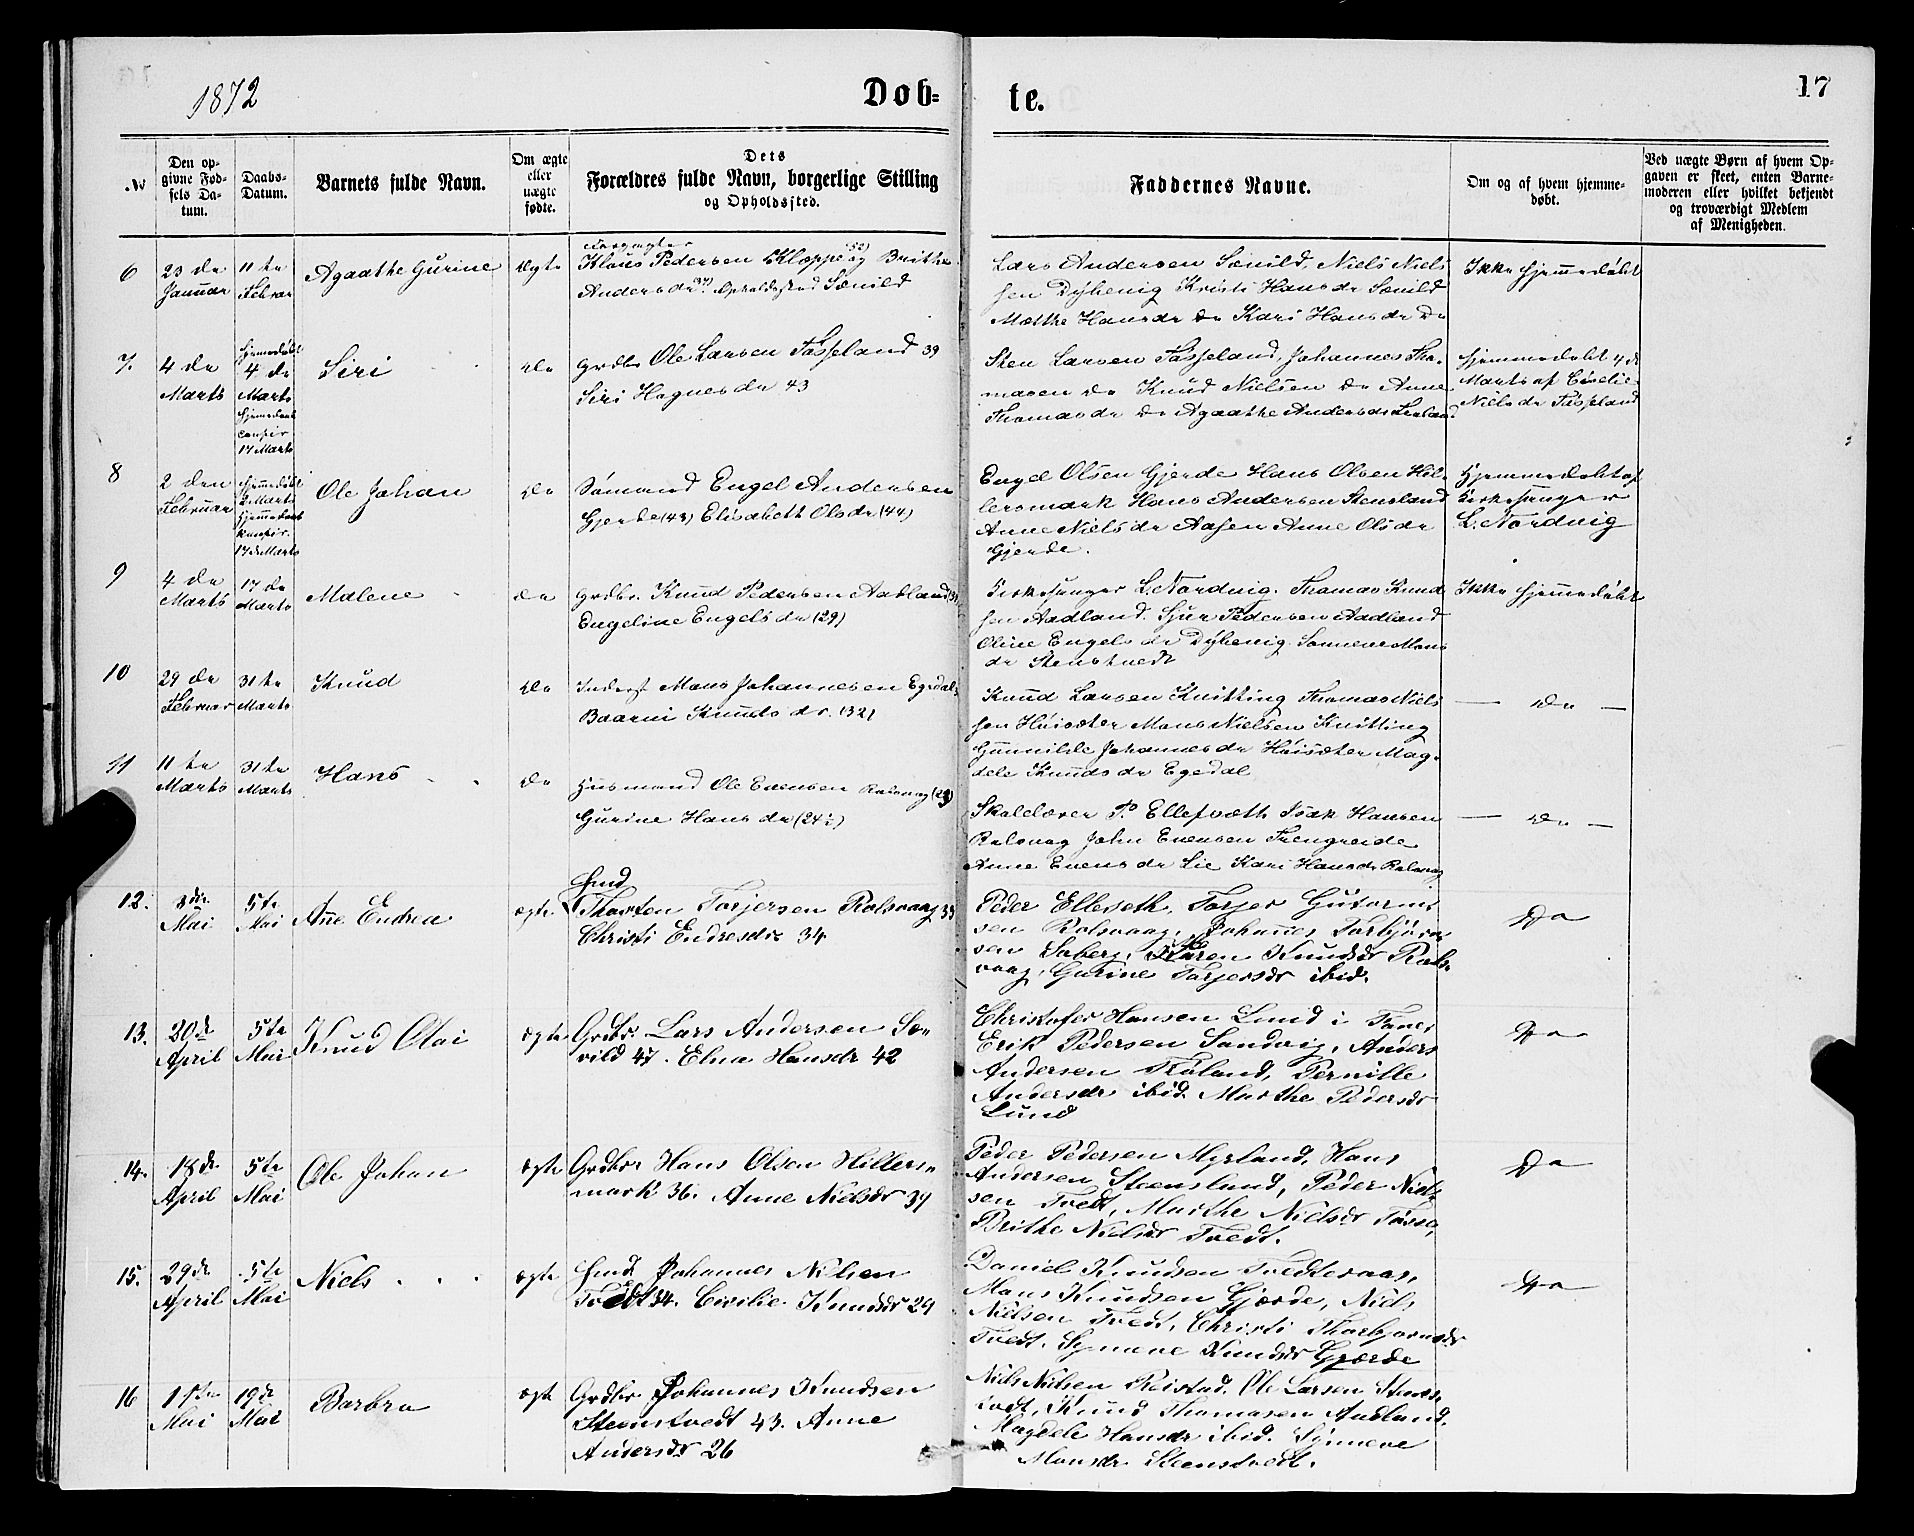 1872
Døb=
te.
17
№
Den op-
givne Fød-
sels Da-
tum.
Daabs-
Datum.
Barnets fulde Navn.
Om ægte
eller
uægte
fødte.
Dets
Forældres fulde Navn, borgerlige Stilling
og Opholdssted.
Faddernes Navne.
Om og af hvem hjemme-
døbt.
Ved uægte Børn af hvem Op-
gaven er skeet, enten Barne-
moderen eller hvilket bekjendt
og troværdigt Medlem
af Menigheden.
6
23 de
Januar
11 te
Februar
Agaathe Gurine
ægte
Klaus Pedersen Kleppe og Brithe
Andersdr Opholdssted Sævild
Lars Andersen Sævild, Niels Niels
sen Dyhevig Kristi Hansdr Sævild
Mætthe Hansdr do Kari Hansdr do
Ikke hjemmedøbt
7.
4 de
Marts
hjemmedøbt
4 de
Marts
hjemmedaab
confir
17 Marts
Siri
do
Grdbr Ole Larsen Tøsseland 39
Siri Hagnesdr 43
Sten Larsen Tøsseland, Johannes Tho-
masen do Knud Nielsen do Anne
Thomasdr do Agaathe Andersdr
hjemmedøbt 4 de
Marts af Cicelie
Nielsdr Tøsseland
8
2 den
Februar
hjemmedøbt
2 Marts
hjemmedaab
konfir.
17 de Marts
Ole Johan
do
Sømand Engel Andersen
Gjerde (43) Elisabeth Olsdr (44)
Engel Olsen Gjerde Hans Olsen Hil-
lersmark Hans Andersen Stensland
Anne Nielsdr Aasen Anne Olsdr
Gjerde.
Hjemmedøbt af
Kirkesanger
L. Nordvig
9
4 de
Marts
17 de
Marts
Malene
do
Grdbr. Knud Pedersen Aadland
Engeline Engelsdr (29)
Kirkesanger L. Nordvig. Thomas Knud
sen Aadland. Sjur Pedersen Aadland
Oline Engelsdr Dyhevig Sønneve Mons
dr Stenstvedt
Ikke hjemmedøbt
10
29 de
Februar
31 te
Marts
Knud
do
Inderst Mons Johannesen Egedal
Baarni Knudsdr. (32)
Knud Larsen Knitting Thomas Niels
sen Høisæter Mons Nielsen Knitting
Gunnilde Johannesdr Høisæter Mag-
dele Knudsdr Egedal
— do —
11
11 te
Marts
31 te
Marts
Hans
do
Husmand Ole Evensen Rolsvag
Gurine Hansdr (24½)
Skolelærer P. Ellefsæth Isak Hansen
Rolsvag John Evensen Trengereide
Anne Evensdr Lie Kari Hansdr Rolsvag
— do —
12.
3die
Mai
5te
Mai
Ane Endrea
ægte
Hmd
Thorsten Torjersen Rolsvaag 33
Christi Endresdr 34
Peder Ellesæth, Torjer Gutorm
sen Rolsvaag, Johannes Torbjørn-
sen Soberg, Karen Knudsdr Rols-
vaag, Gurine Torjersdr ibid.
Do
13.
20de
April
5te
Mai
Knud Olai
ægte
Grdbr. Lars Andersen Sæ-
vild 47. Elna Hansdr 42
Christofer Hansen Lund i Fane,
Erik Pedersen Sandvig, Anders
Andersen Frøland, Pernille
Andersdr ibid. Marthe Pedersdr
Lund
Do
14.
18de
April
5te
Mai
Ole Johan
ægte
Grdbr Hans Olsen Hillers-
mark 36. Anne Nielsdr 39
Peder Pedersen Myrland, Hans
Andersen Steensland, Peder Niel-
sen Tvedt, Marthe Nielsdr Tøsse,
Brithe Nielsdr Tvedt.
Do
15.
29de
April
5te
Mai
Niels
ægte
Hmd Johannes Nilsen
Tvedt 34. Cicilie Knudsdr 29
Daniel Knudsen Tvedteraas,
Mons Knudsen Gjærde, Niels
Nielsen Tvedt, Christi Thorbjørnsdr
Tvedt. Synneve Knudsdr Gjærde
Do
16
Mai
19de
Mai
Barbra
ægte
Grdbr Johannes Knudsen
Steenstvedt 43. Anne
Andersdr 26
Niels Nielsen Reistad. Ole Larsen Steens-
tvedt, Knud Thomasen Aadland.
Magdele Hansdr ibid. Synneve
Monsdr Steenstvedt.